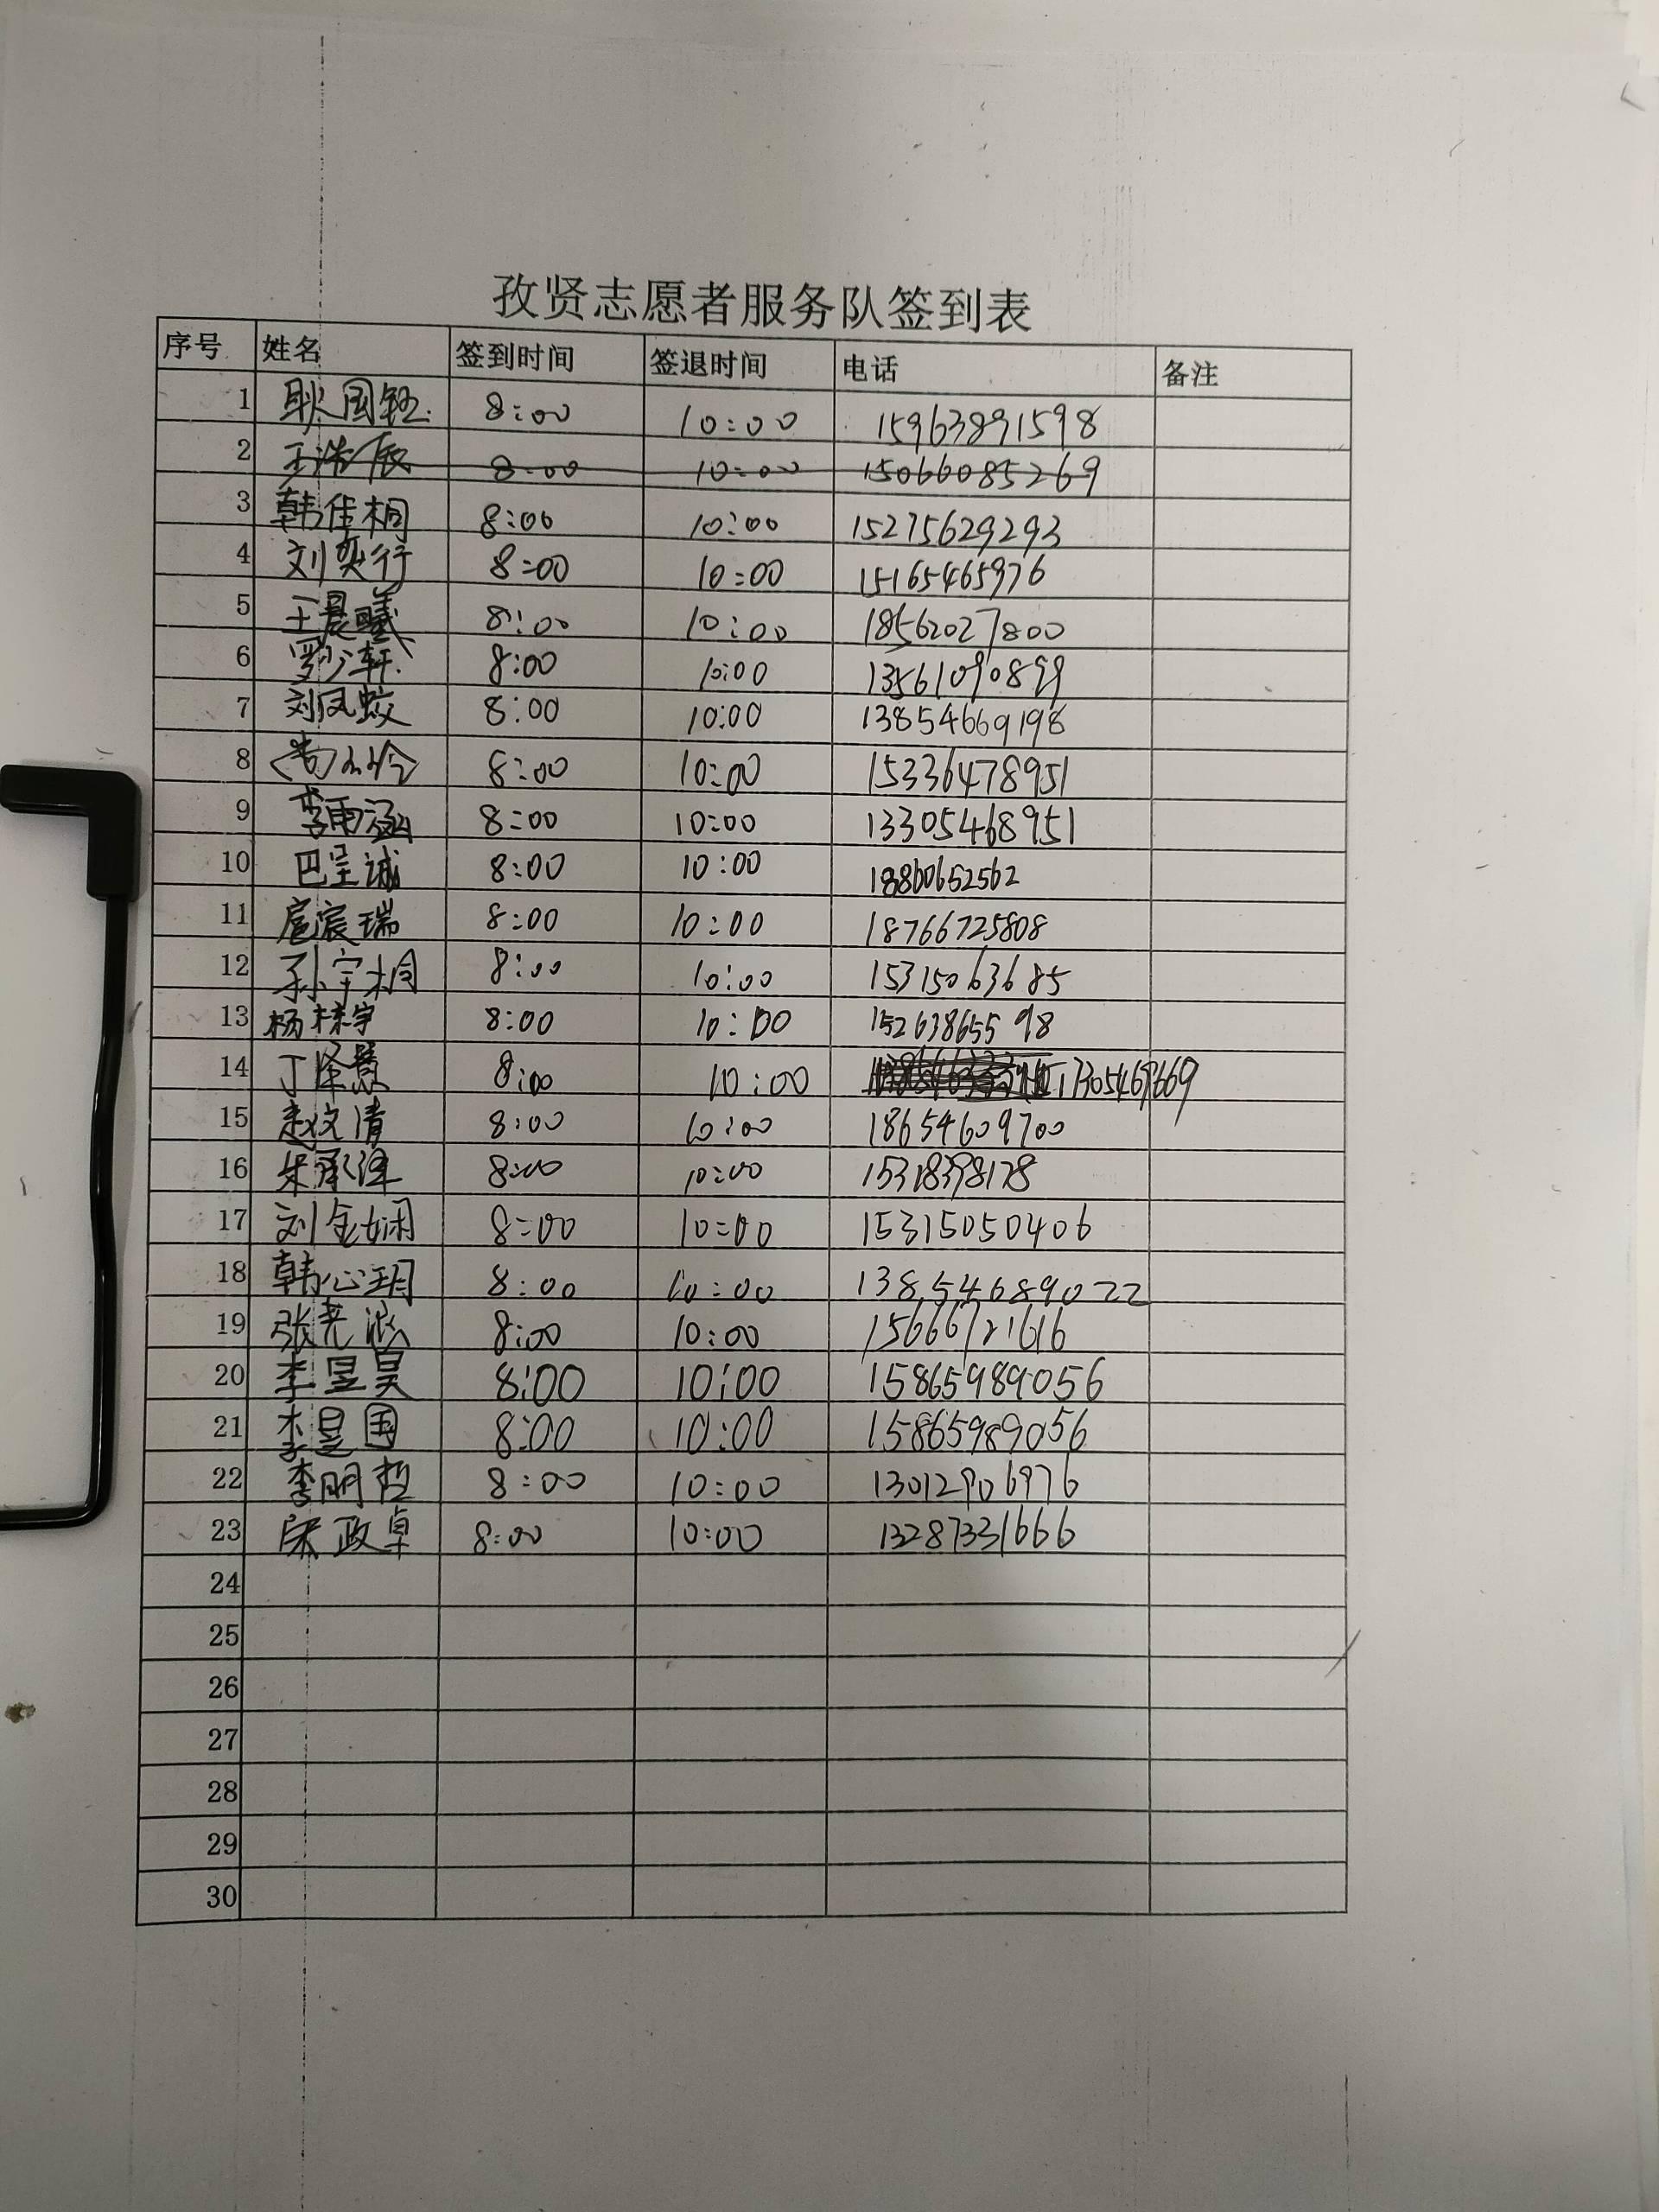 孜贤志愿者服务队签到表
序号 姓名 签到时间 签退时间 电话 备注
1 耿国钰 8:00 10:00 15963891598
2 王浩辰 8:00 10:00 15066085269
3 韩佳桐 8:00 10:00 15275629293
4 刘奕行 8:00 10:00 15165465976
5 王晨曦 8:00 10:00 18562027800
6 罗少轩 8:00 10:00 13561090899
7 刘凤蛟 8:00 10:00 13854669198
8 8:00 10:00 15336478951
9 李雨涵 8:00 10:00 13305468951
10 巴呈诚 8:00 10:00 18860652562
11 扈宸瑞 8:00 10:00 18766725808
12 孙宇桐 8:00 10:00 15315063685
13 杨林宇 8:00 10:00 15263865598
14 丁泽慧 8:00 10:00
15 赵文清 8:00 10:00 18654609700
16 朱承泽 8:00 10:00
17 刘金娴 8:00 10:00 15315050406
18 韩心玥 8:00 10:00 13854689022
19 8:00 10:00 15666721616
20 李昱昊 8:00 10:00 15865989056
21 李昱国 8:00 10:00 15865989056
22 李明哲 8:00 10:00 13012906976
23 宋政卓 8:00 10:00 13287331666
24
25
26
27
28
29
30